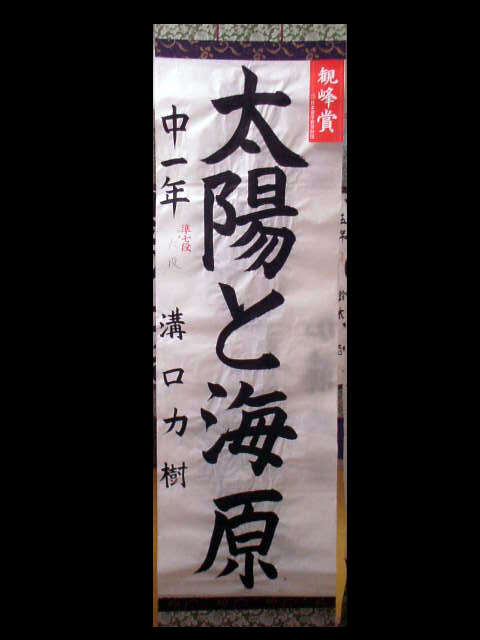 観峰賞
太陽と海原
中一年
準七段
溝口力樹